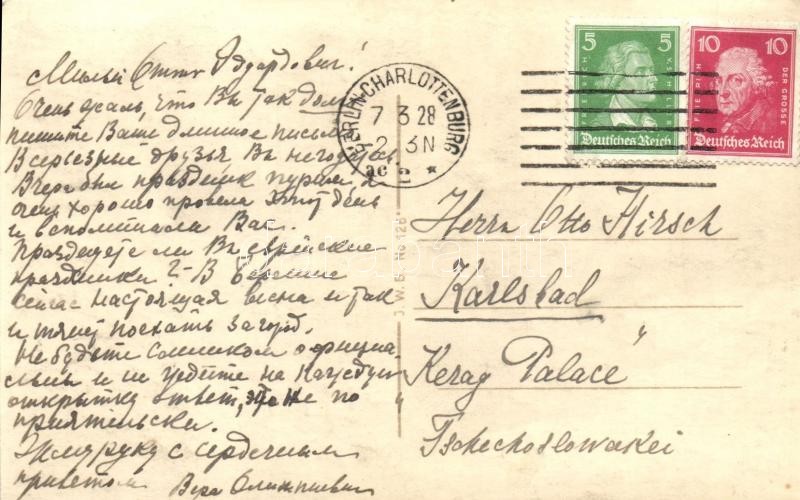 Милый Отто Эдуардович!
Очень жаль, что Вы так долго
пишите Ваше длинное письмо
В серьезные друзья Вы не годитесь
Вчера был праздник пурим, я
очень хорошо провела этот день
и вспоминала Вас.
Празднуете ли Вы еврейские
праздники? - В Берлине
сейчас настоящая весна и так
и тянет поехать за город.
Не будьте слишком официа-
льны и не ждите на каждую
открытку ответ, это не по
приятельски.
Жму руку с сердечным
приветом Вера
BERLIN-CHARLOTTENBURG
7 3 28
2-3N
ac 2 *
5 5
FRIEDRICH V. SCHILLER
Deutsches Reich
10 10
FRIEDRICH DER GROSSE
Deutsches Reich
Herrn Otto Hirsch
Karlsbad
Palace"
Tschechoslowakei
J. W. B. No 126